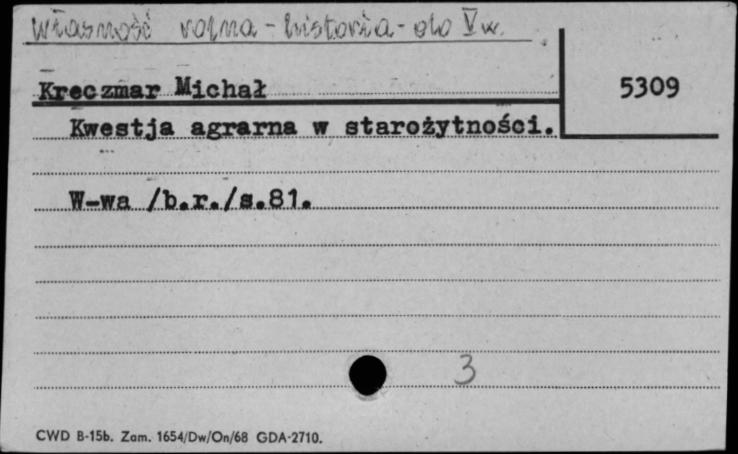 własność rolna - historia - do V w.
Kreczmar Michał
5309
Kwestja agrarna w starożytności.
W-wa /b.r./s.81.
3
CWD B-15b. Zam. 1654/Dw/On/68 GDA-2710.